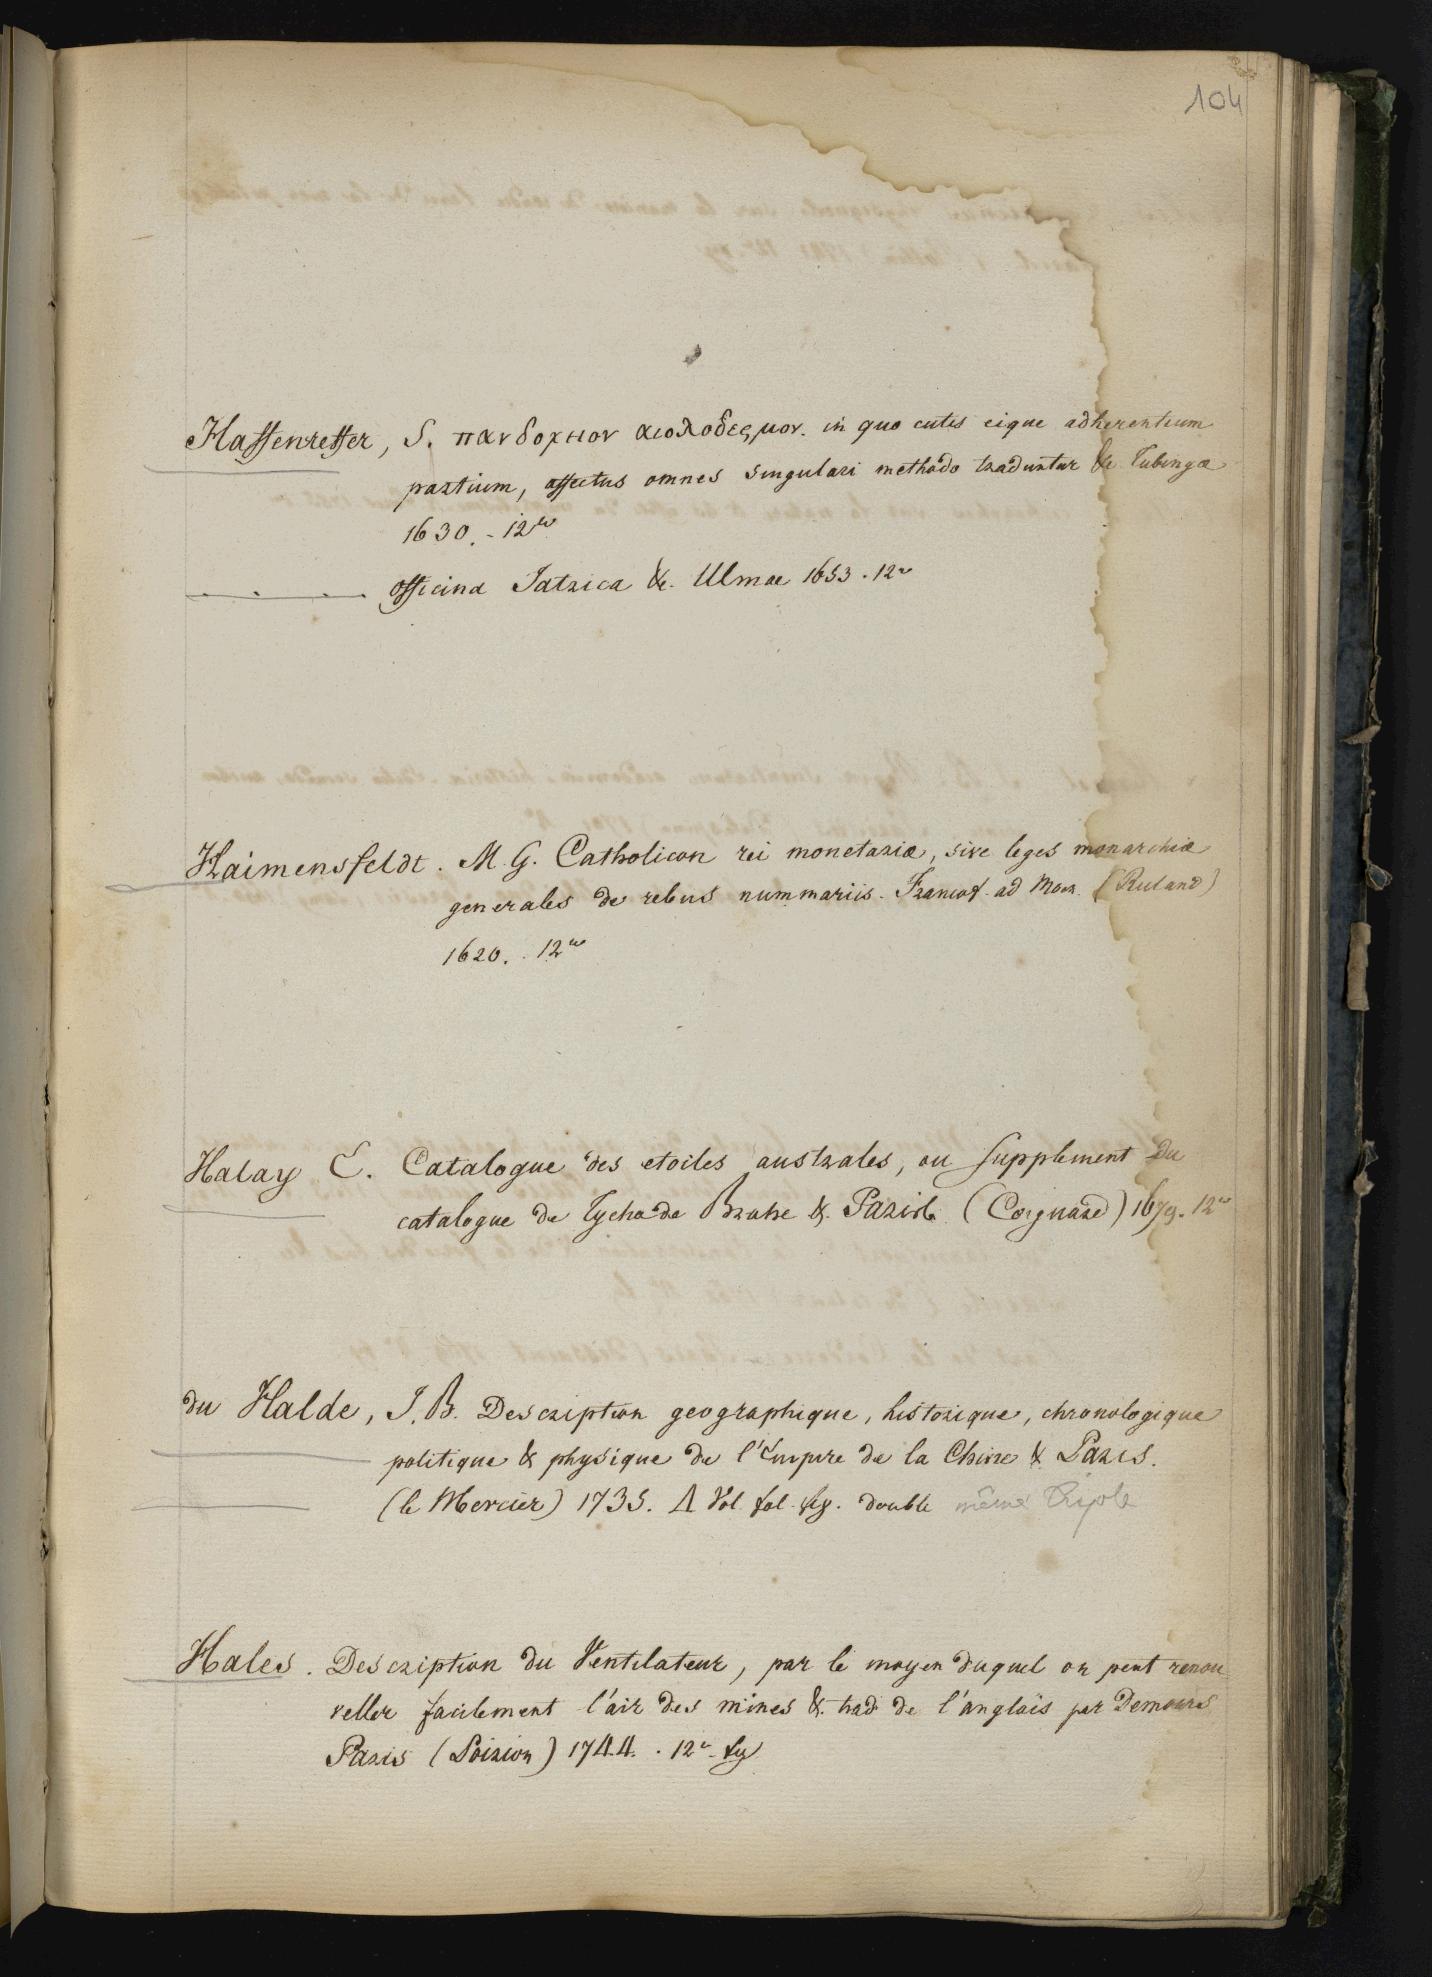 104
Haffenreffer, S. πανδοχειον αιολοδερμον. in quo cutis eique adherentium
partium, affectus omnes singulari methodo traduntur &c Tubingæ
1630. - 12º
officina Iatrica &c. Ulmae 1653. 12º
Haimensfeldt. M. G. Catholicon rei monetariæ, sive leges monarchiæ
generales de rebus nummariis. Francof. ad Moen. (Ruland)
1620. 12º
Halay E. Catalogue des etoiles australes, ou supplement du
catalogue de Tycho de Brahe &. Paris (Coignard) 1679. 12º
du Halde, J. B. Description geographique, historique, chronologique
politique & physique de l'Empire de la Chine &. Paris.
(le Mercier) 1735. 4 Vol. fol. fig. double même triple
Hales. Description du Ventilateur, par le moyen duquel on peut renou
veller facilement l'air des mines &. trad de l'anglais par Demours
Paris (Poirion) 1744. 12º fig